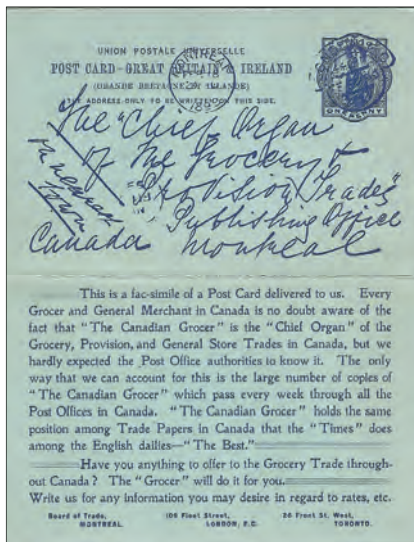 UNION POSTALE UNIVERSELLE
POST CARD - GREAT BRITAIN & IRELAND
(GRANDE BRETAGNE ET IRLANDE)
THE ADDRESS ONLY TO BE WRITTEN ON THIS SIDE.
MONTREAL
ONE PENNY
The "Chief Organ
of The Grocery &
Provision Trades"
Publishing Office
Canada Montreal
This is a fac-simile of a Post Card delivered to us. Every
Grocer and General Merchant in Canada is no doubt aware of the
fact that "The Canadian Grocer" is the "Chief Organ" of the
Grocery, Provision, and General Store Trades in Canada, but we
hardly expected the Post Office authorities to know it. The only
way that we can account for this is the large number of copies of
"The Canadian Grocer" which pass every week through all the
Post Offices in Canada. "The Canadian Grocer" holds the same
position among Trade Papers in Canada that the "Times" does
among the English dailies—"The Best."
Have you anything to offer to the Grocery Trade through-
out Canada? The "Grocer" will do it for you.
Write us for any information you may desire in regard to rates, etc.
Board of Trade, 109 Fleet Street, 26 Front St. West,
MONTREAL. LONDON, E.C. TORONTO.